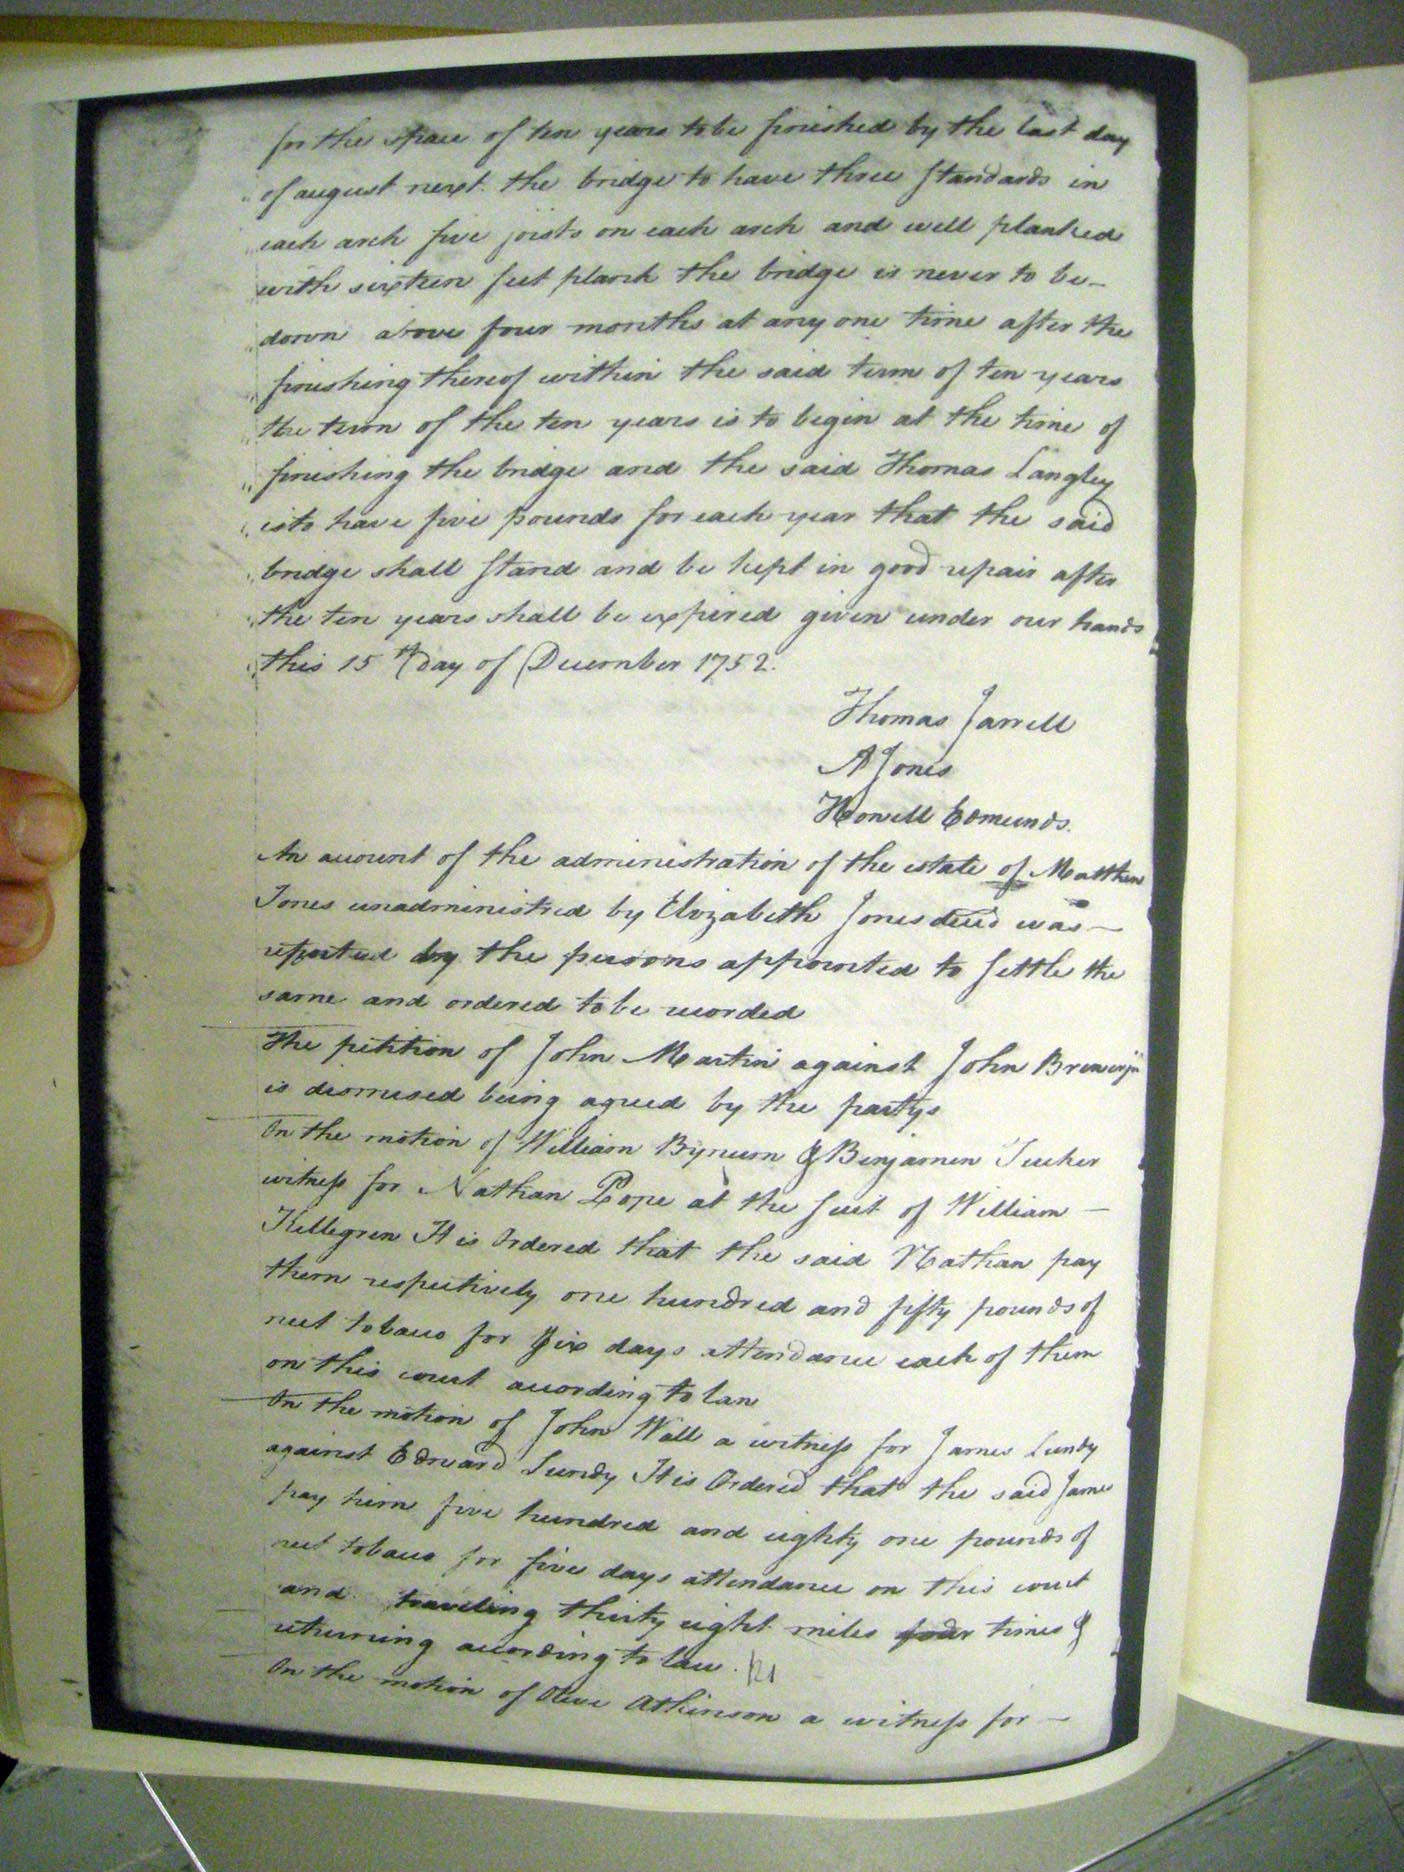 for the space of ten years to be finished by the last day
of august next. the bridge to have three standards in
each arch five joists on each arch and well planked
with sixteen feet plank the bridge is never to be
down above four months at any one time after the
finishing thereof within the said term of ten years
the term of the ten years is to begin at the time of
finishing the bridge and the said Thomas Langley
is to have five pounds for each year that the said
bridge shall stand and be kept in good repair after
the ten years shall be expired given under our hands
this 15th day of December 1752.
Thomas Jarrell
A Jones
Howell Edmunds.
An account of the administration of the estate of Matthew
Jones unadministred by Elizabeth Jones decd was
reported by the persons appointed to settle the
same and ordered to be recorded
The petition of John Martin against John Brewer jr
is dismised being agreed by the partys
On the motion of William Bynum & Benjamen Tucker
witness for Nathan Pope at the suit of William
Killegren It is Ordered that the said Nathan pay
them respectively one hundred and fifty pounds of
neet tobacco for six days attendance each of them
on this court according to law
On the motion of John Wall a witness for James Lundy
against Edward Lundy It is Ordered that the said James
pay him five hundred and eighty one pounds of
neet tobacco for five days attendance on this court
and traveling thirty eight miles four times &
returning according to law.
On the motion of Olive Atkinson a witness for